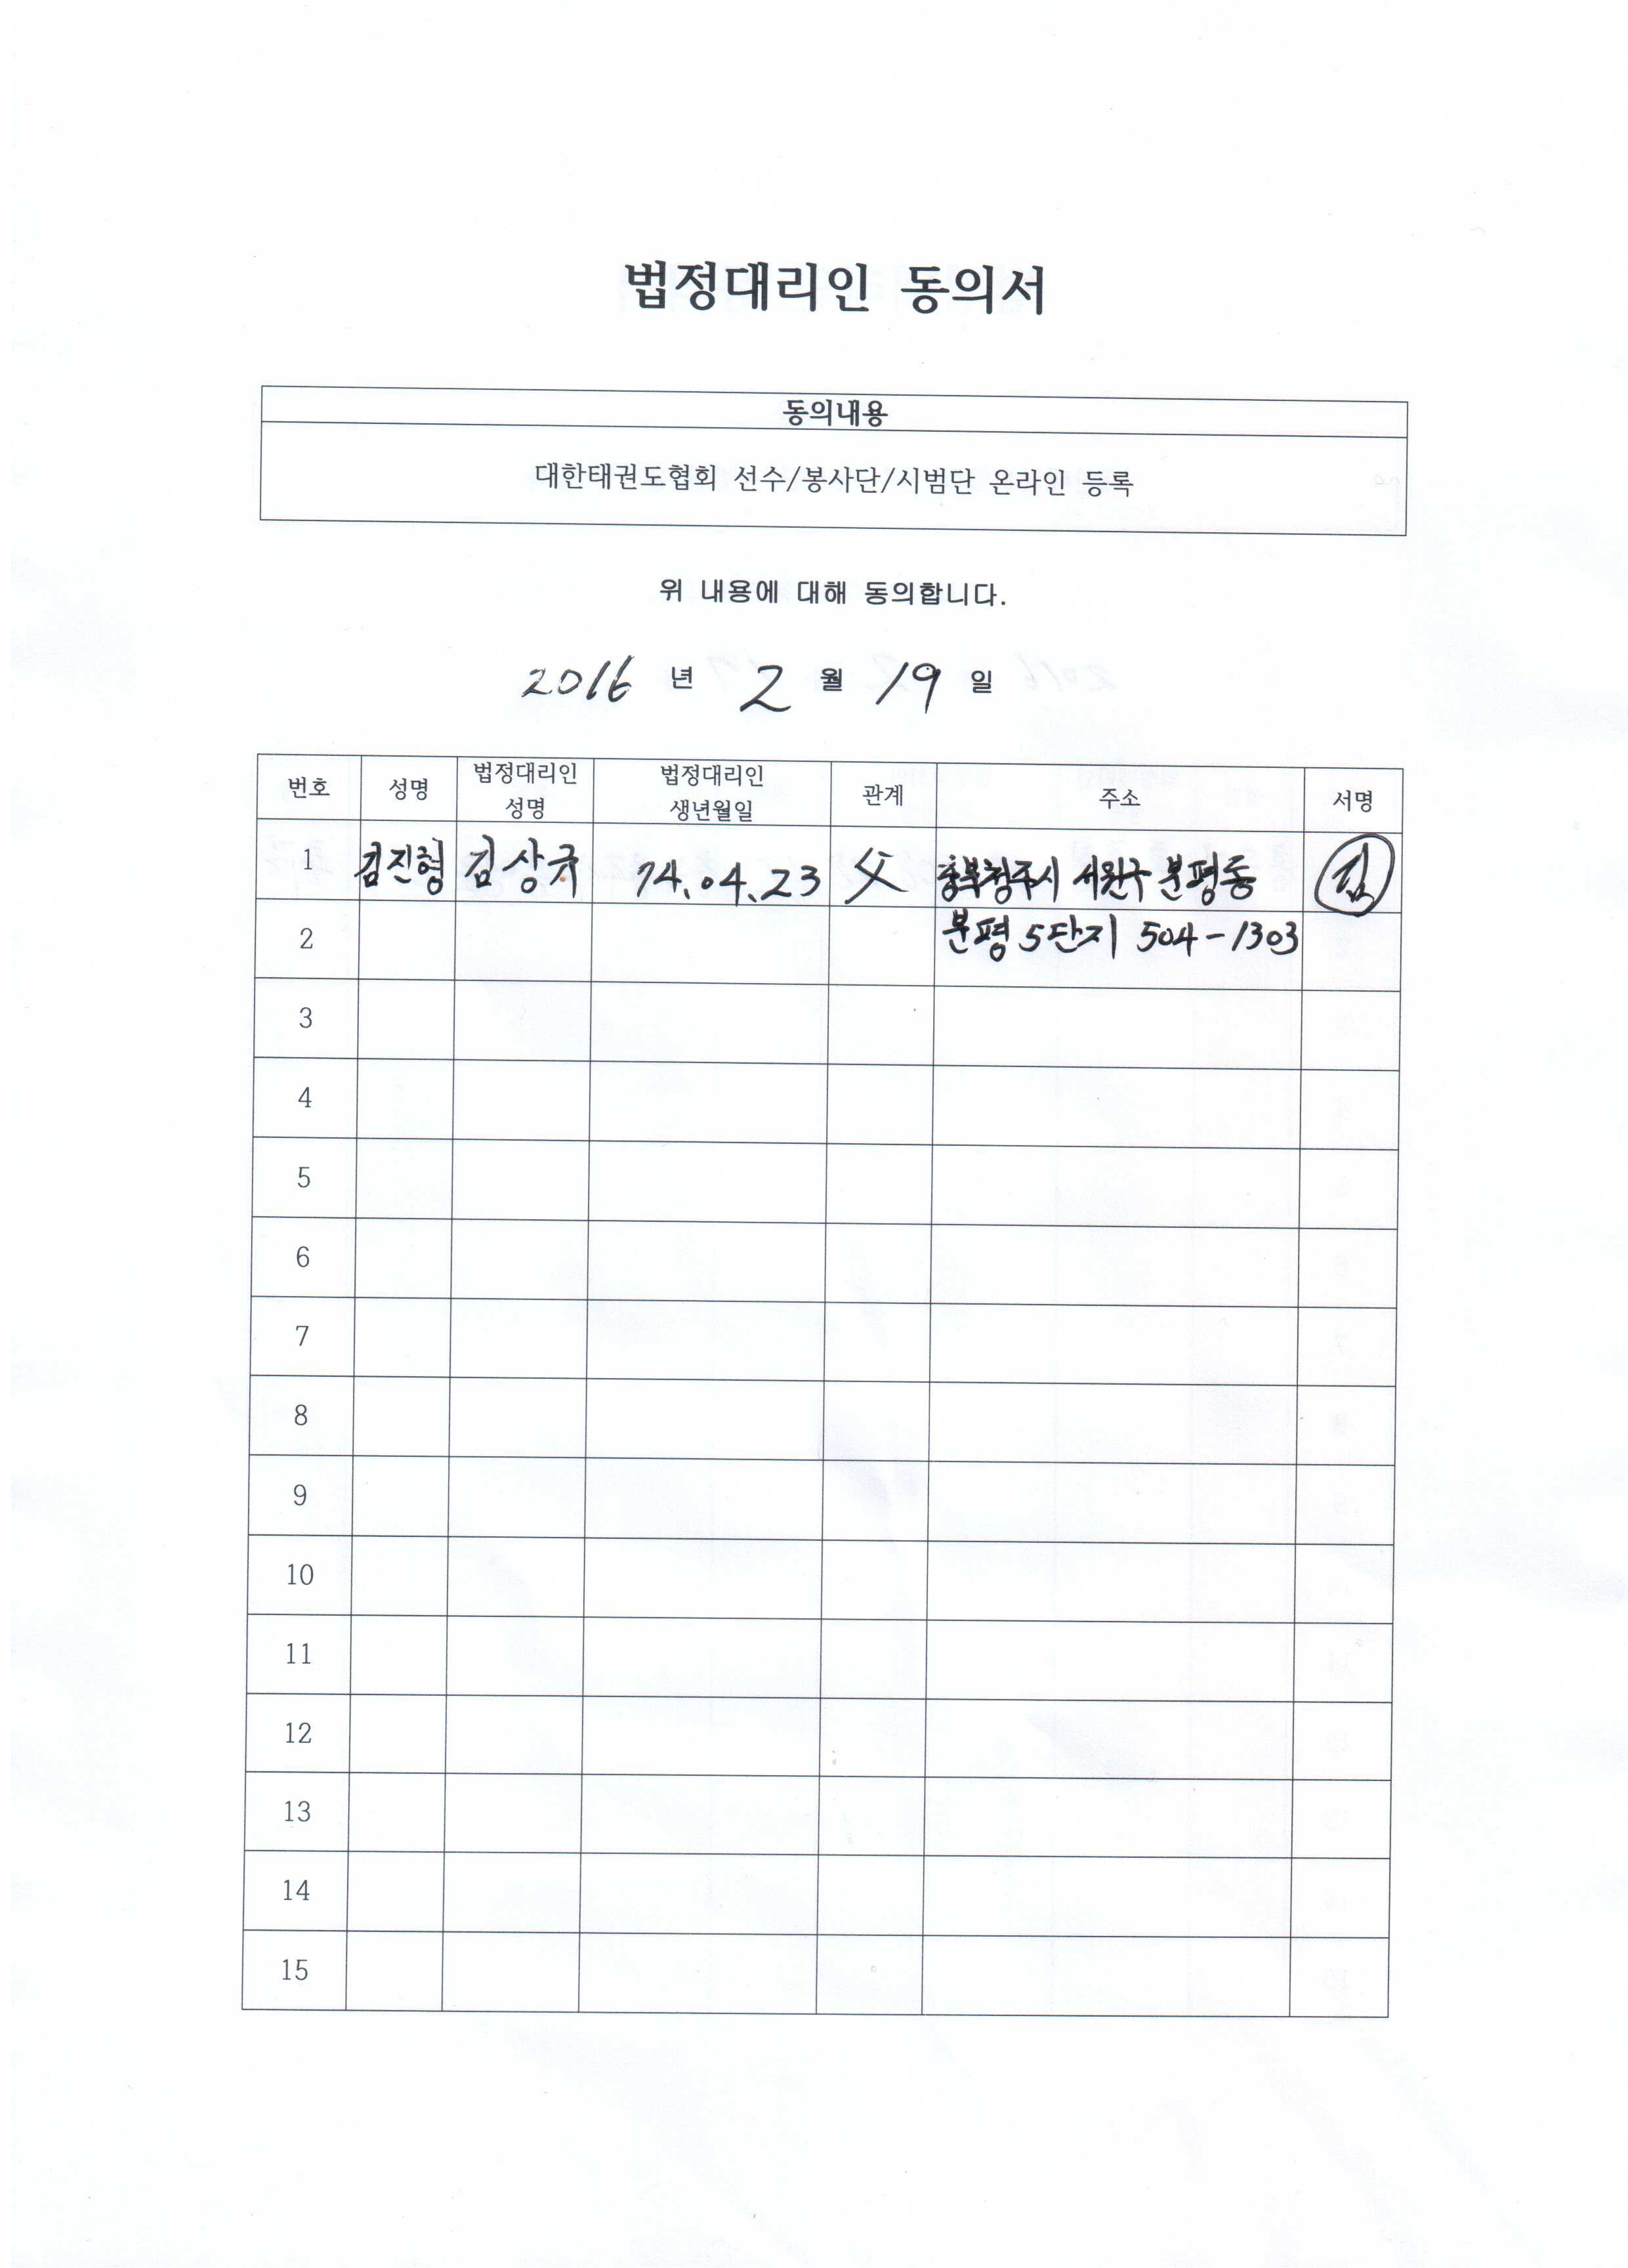 법정대리인 동의서
동의내용
대한태권도협회 선수/봉사단/시범단 온라인 등록
위 내용에 대해 동의합니다.
2016 년 2 월 19 일
번호 성명 법정대리인 성명 법정대리인 생년월일 관계 주소 서명
1 김진형 김상규 74.04.23 父 충북청주시 서원구 분평동 김
2 분평 5단지 504-1303
3
4
5
6
7
8
9
10
11
12
13
14
15